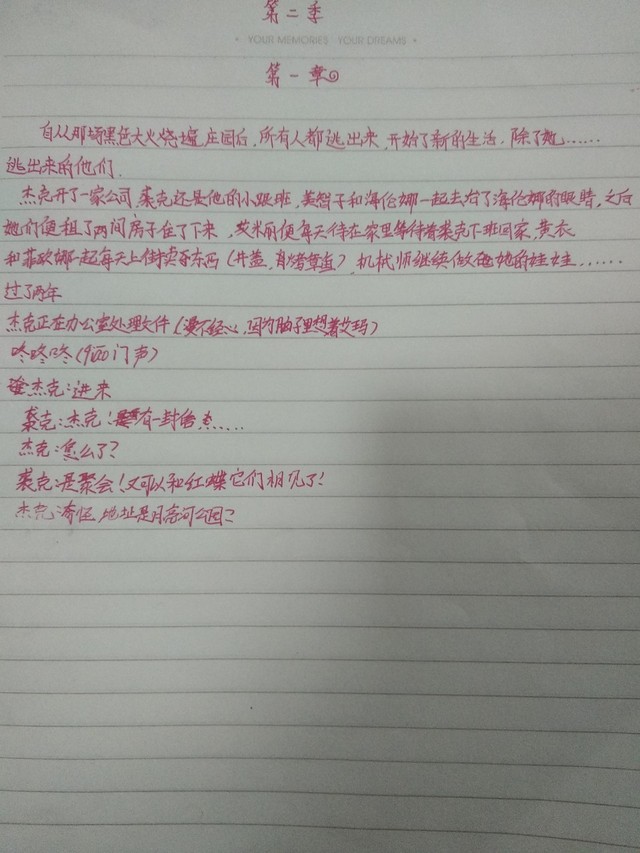 第二季
• YOUR MEMORIES YOUR DREAMS •
第一章
自从那场黑色大火烧塌庄园后,所有人都逃出来,开始了新的生活,除了她……
逃出来的他们,
杰克开了一家公司,裘克还是他的小跟班,美智子和海伦娜一起去治了海伦娜的眼睛,之后
她们便租了两间房子住了下来,艾米丽便每天待在家里等待着裘克下班回家,黄衣
和菲欧娜一起每天上街卖东西(井盖,肖烤章鱼),机械师继续做她的娃娃……
过了两年
杰克正在办公室处理文件(漫不经心,因为脑子里想着艾玛)
咚咚咚(敲门声)
杰克:进来
裘克:杰克!有一封信……
杰克:怎么了?
裘克:是聚会!又可以和红蝶它们相见了!
杰克:奇怪,地址是月亮河公园?